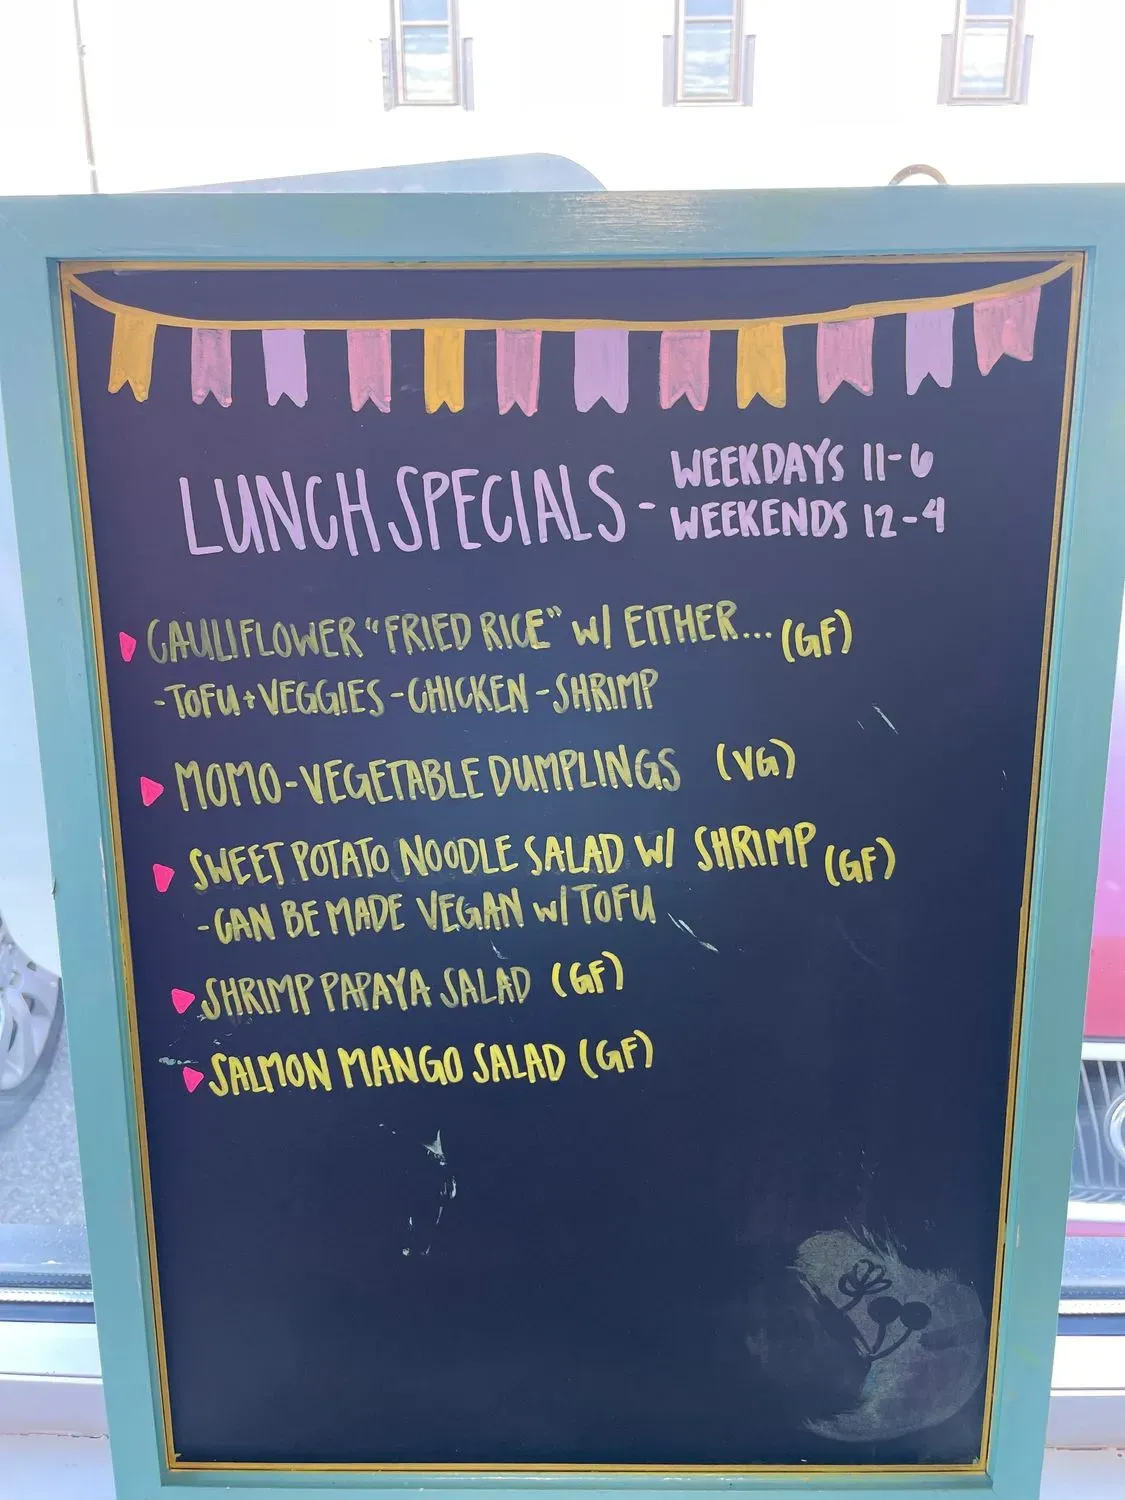 LUNCH SPECIALS - WEEKDAYS 11-6
WEEKENDS 12-4
CAULIFLOWER "FRIED RICE" W/ EITHER... (GF)
-TOFU+VEGGIES -CHICKEN -SHRIMP
MOMO-VEGETABLE DUMPLINGS (VG)
SWEET POTATO NOODLE SALAD W/ SHRIMP (GF)
-CAN BE MADE VEGAN W/ TOFU
SHRIMP PAPAYA SALAD (GF)
SALMON MANGO SALAD (GF)